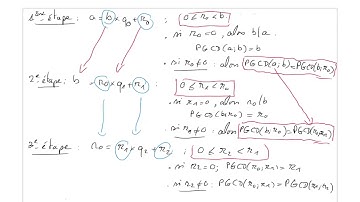 1ère étape : a = b × q0 + r0 ; 0 ≤ r0 < b
. si r0 = 0, alors b|a.
PGCD(a;b) = b
. si r0 ≠ 0 : alors PGCD(a;b) = PGCD(b;r0)
2e étape : b = r0 × q1 + r1 ; 0 ≤ r1 < r0
. si r1 = 0, alors r0|b
PGCD(b;r0) = r0
. si r1 ≠ 0 : alors PGCD(b;r0) = PGCD(r0;r1)
3e étape : r0 = r1 × q2 + r2 ; 0 ≤ r2 < r1
. si r2 = 0 ; PGCD(r0;r1) = r1
. si r2 ≠ 0 : PGCD(r0;r1) = PGCD(r1;r2)